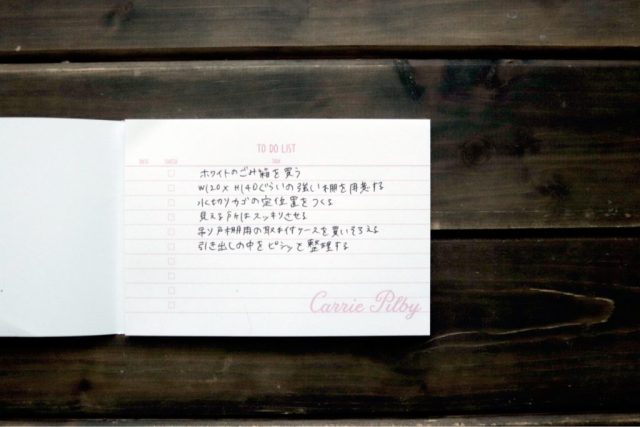 TO DO LIST
DATE CHECK TASK
ホワイトのごみ箱を買う
W120×H140ぐらいの強い棚を用意する
水切りカゴの定位置をつくる
見える所はスッキリさせる
吊り戸棚用の取手付ケースを買いそろえる
引き出しの中をピシッと整理する
Carrie Pilby